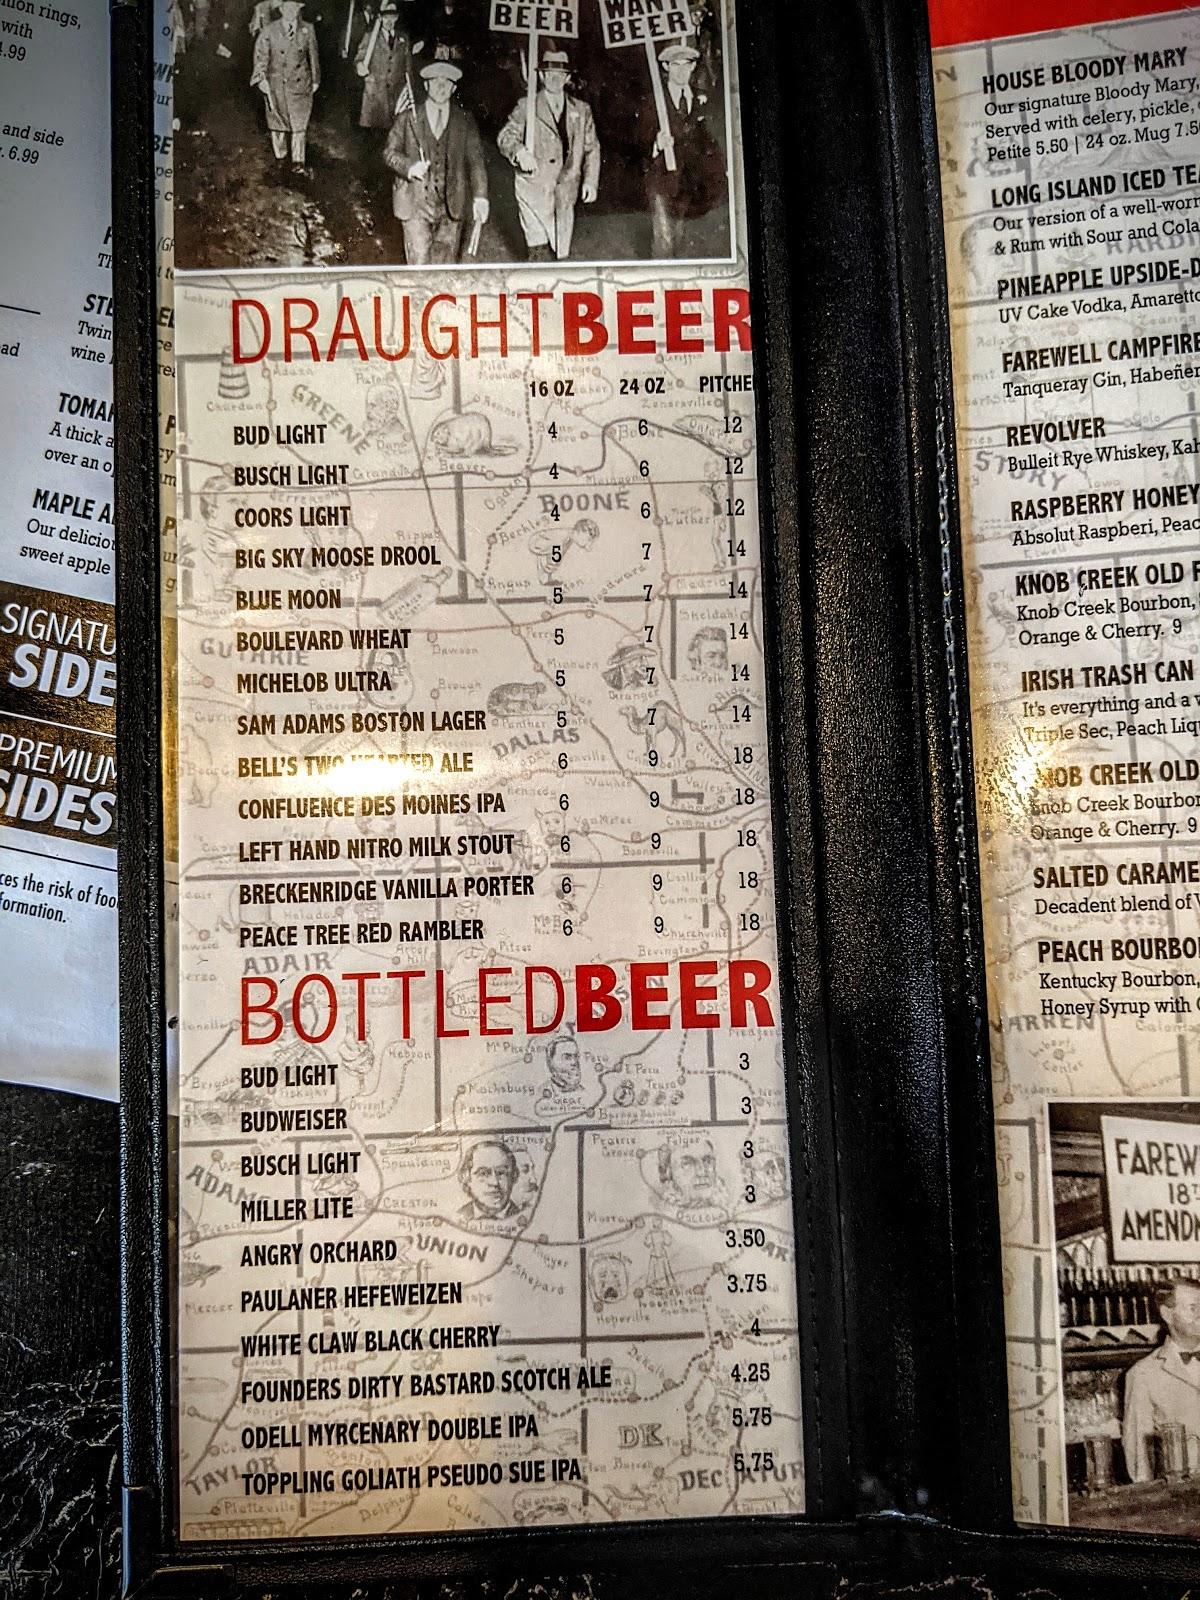 nion rings,
with
4.99
and side
6.99
STE
Twin
wine
TOMA
A thick a
over an o
MAPLE A
Our delicio
sweet apple
SIGNATU
SIDE
PREMIUM
SIDES
ces the risk of foo
formation.
BEER
WANT
BEER
DRAUGHTBEER
16 OZ 24 OZ PITCHE
BUD LIGHT 4 6 12
BUSCH LIGHT 4 6 12
COORS LIGHT 4 6 12
BIG SKY MOOSE DROOL 5 7 14
BLUE MOON 5 7 14
BOULEVARD WHEAT 5 7 14
MICHELOB ULTRA 5 7 14
SAM ADAMS BOSTON LAGER 5 7 14
BELL'S TWO HEARTED ALE 6 9 18
CONFLUENCE DES MOINES IPA 6 9 18
LEFT HAND NITRO MILK STOUT 6 9 18
BRECKENRIDGE VANILLA PORTER 6 9 18
PEACE TREE RED RAMBLER 6 9 18
BOTTLEDBEER
BUD LIGHT 3
BUDWEISER 3
BUSCH LIGHT 3
MILLER LITE 3
ANGRY ORCHARD 3.50
PAULANER HEFEWEIZEN 3.75
WHITE CLAW BLACK CHERRY 4
FOUNDERS DIRTY BASTARD SCOTCH ALE 4.25
ODELL MYRCENARY DOUBLE IPA 5.75
TOPPLING GOLIATH PSEUDO SUE IPA 5.75
GREENE
BOONE
GUTHRIE
DALLAS
ADAIR
ADAMS
UNION
TAYLOR
DECATUR
HOUSE BLOODY MARY
Our signature Bloody Mary,
Served with celery, pickle,
Petite 5.50 | 24 oz. Mug 7.5
LONG ISLAND ICED TEA
Our version of a well-worn
& Rum with Sour and Cola
PINEAPPLE UPSIDE-D
UV Cake Vodka, Amaretto
FAREWELL CAMPFIRE
Tanqueray Gin, Habeñer
REVOLVER
Bulleit Rye Whiskey, Kah
RASPBERRY HONEY
Absolut Raspberi, Peac
KNOB CREEK OLD F
Knob Creek Bourbon,
Orange & Cherry. 9
IRISH TRASH CAN
It's everything and a
Triple Sec, Peach Liq
KNOB CREEK OLD
Knob Creek Bourbon
Orange & Cherry. 9
SALTED CARAME
Decadent blend of
PEACH BOURBO
Kentucky Bourbon,
Honey Syrup with
WARREN
FAREW
18T
AMENDM